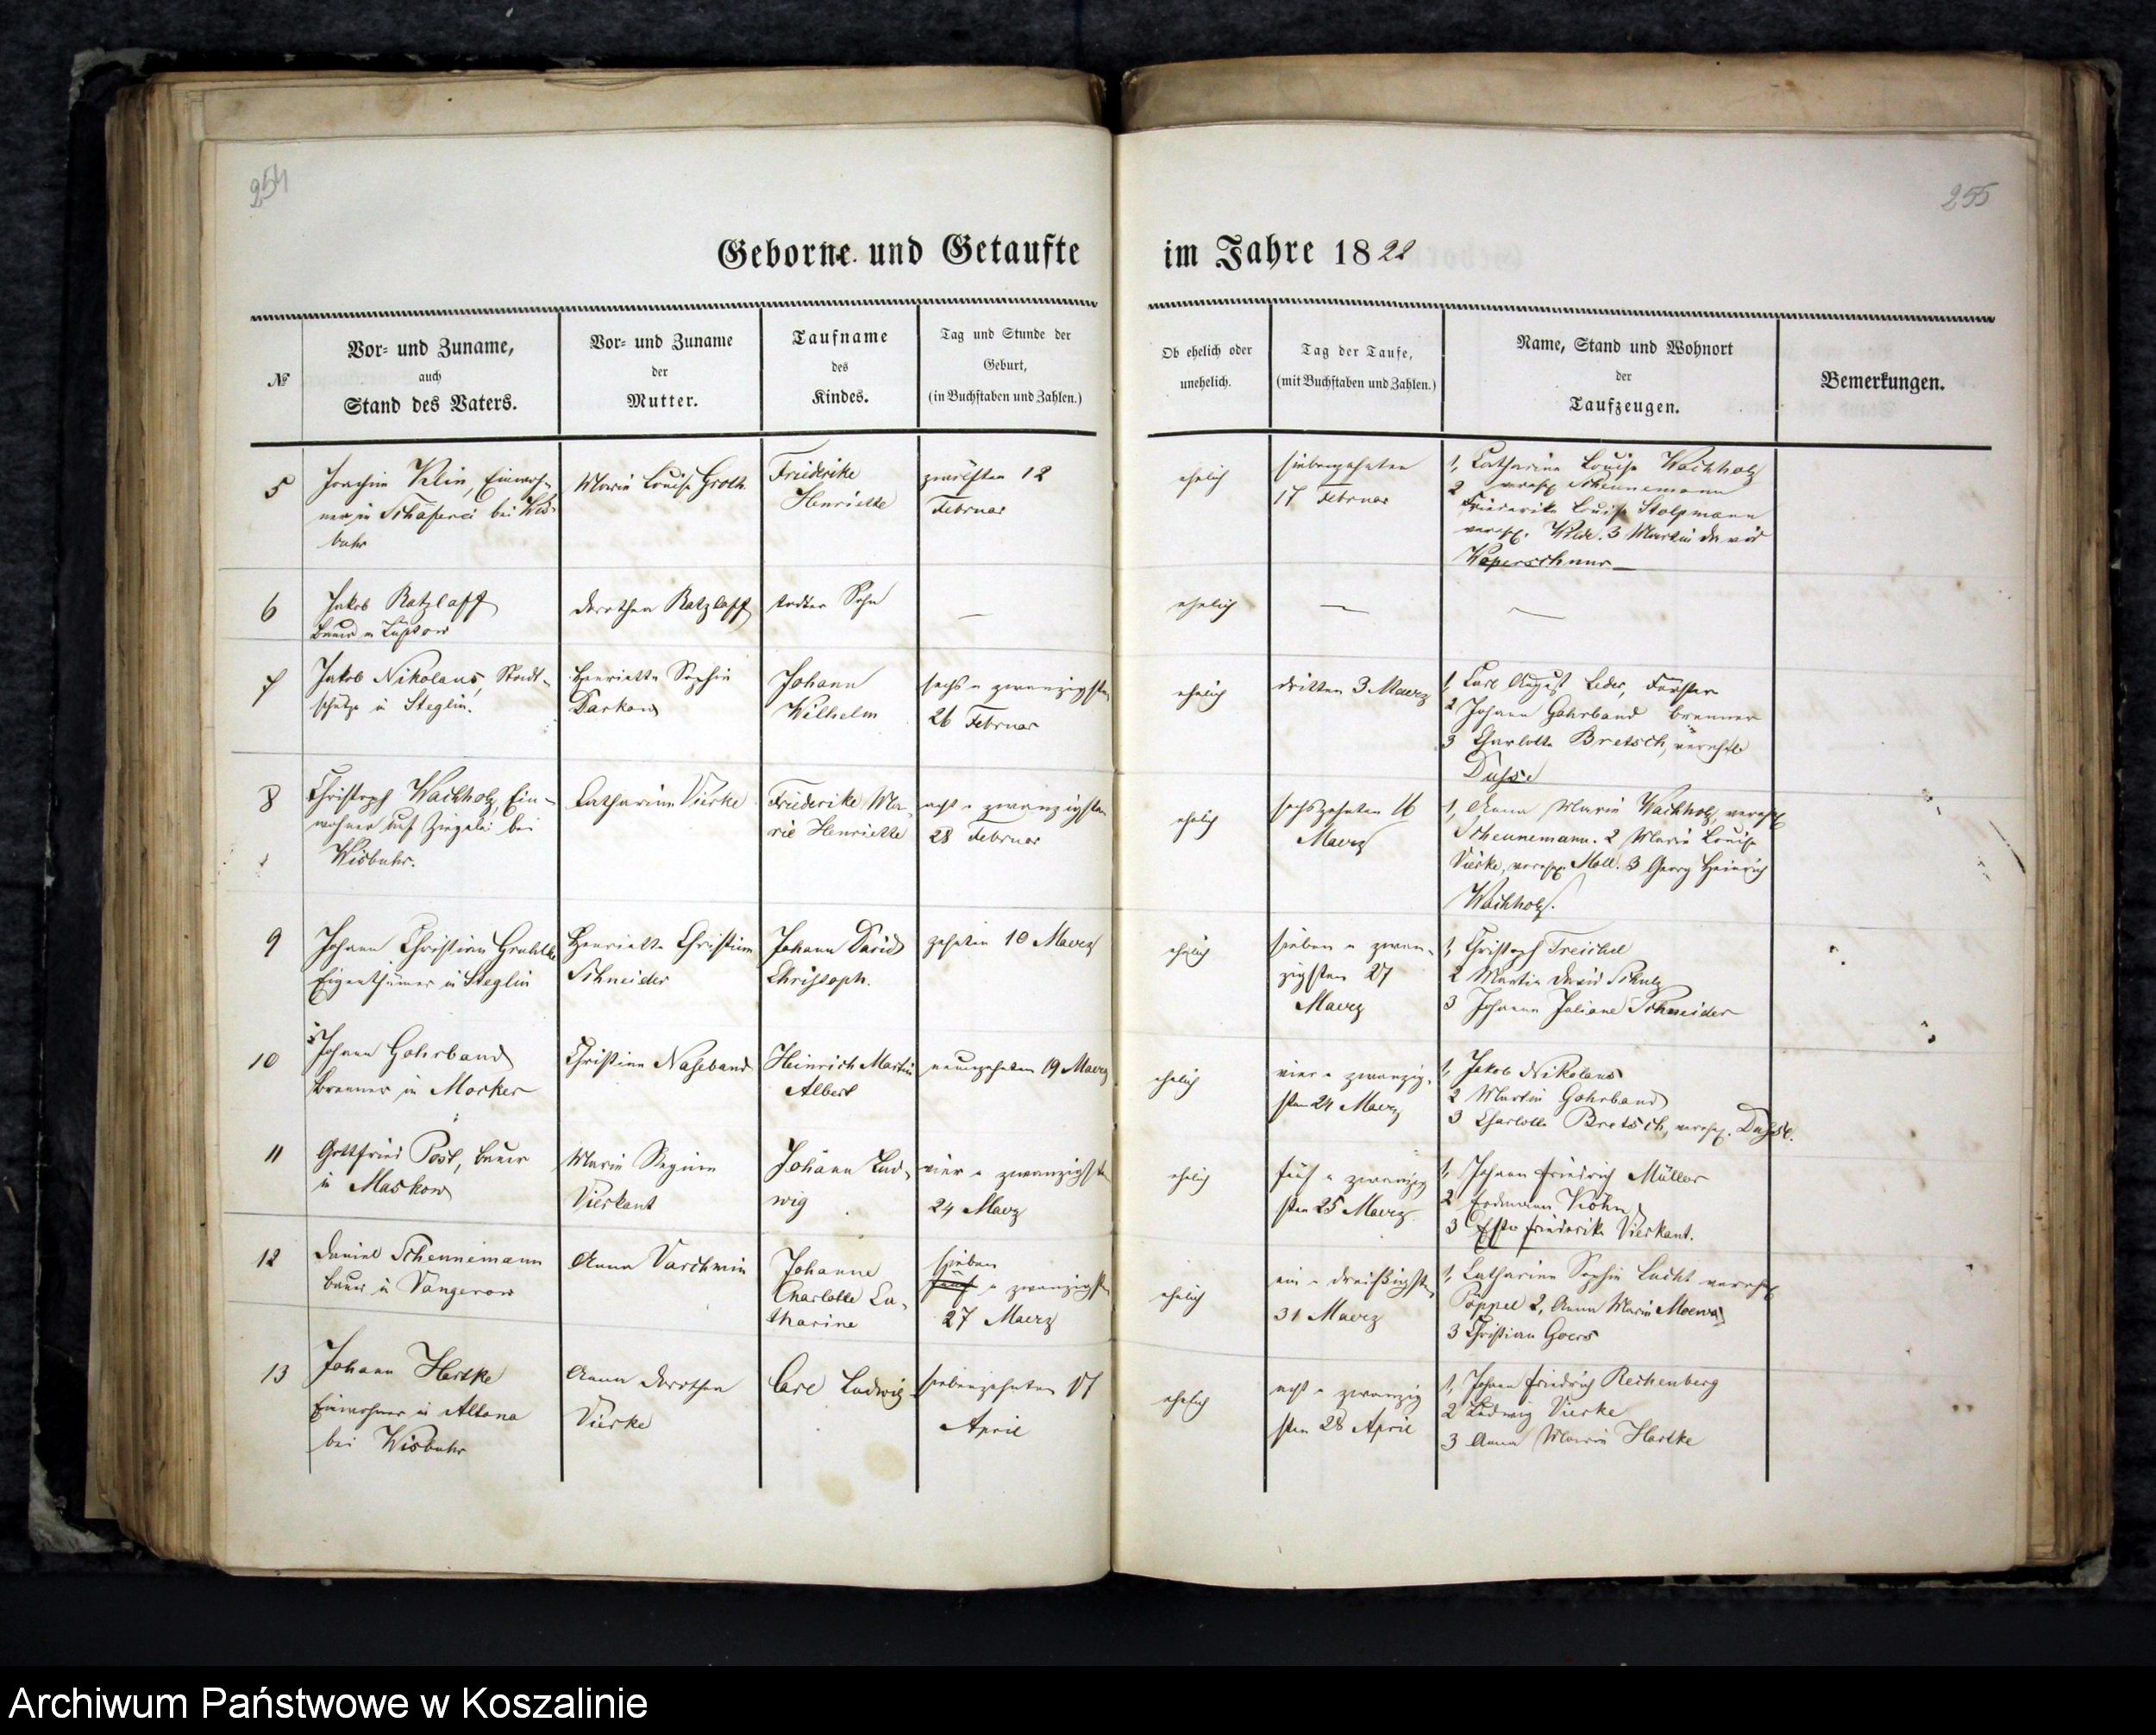 254
255
Geborne und Getaufte im Jahre 1822
№
Vor- und Zuname,
auch
Stand des Vaters.
Vor- und Zuname
der
Mutter.
Taufname
des
Kindes.
Tag und Stunde der
Geburt,
(in Buchstaben und Zahlen.)
Ob ehelich oder
unehelich.
Tag der Taufe,
(mit Buchstaben und Zahlen.)
Name, Stand und Wohnort
der
Taufzeugen.
Bemerkungen.
5
Joachim Klin, Einwoh-
ner in Schäferei bei Wis-
buhr
Marie Louise Groth
Friederike
Henriette
zwölften 12
Februar
ehelich
siebenzehnten
17 Februar
1, Catharine Louise Wachholz
verehl Scheunemann
2 Friederike Louise Stolpmann
verehl. Wilde. 3 Martin David
Waperschnur
6
Jakob Ratzlaff
Bauer in
Dorothea Ratzlaff
todter Sohn
—
ehelich
—
—
7
Jakob Nikolaus, Stadt-
schütze in Steglin.
Henriette Sophie
Darkow
Johann
Wilhelm
sechs u zwanzigsten
26 Februar
ehelich
dritten 3 Maerz
1, Carl August Leder, Förster
2 Johann Gohrband Brenner
3 Charlotte Bretsch, verehl
8
Christoph Wachholz, Ein-
wohner auf Ziegelei bei
Wisbuhr.
Catharine Vierke
Friederike Ma-
rie Henriette
acht u zwanzigsten
28 Februar
ehelich
sechszehnten 16
Maerz
1, Anna Marie Wachholz, verehl
Scheunemann. 2 Marie Louise
Vierke, verehl. Moll. 3 Georg Heinrich
Wachholz.
9
Johann Christian
Eigenthümer in Steglin
Henriette Christine
Schneider
Johann David
Christoph.
zehnten 10 Maerz
ehelich
sieben u zwan-
zigsten 27
Maerz
1, Christoph Treichel
2 Martin David Schulz
3 Johanne Juliane Schneider
10
Johann Gohrband
Brenner in Mocker
Christine Naseband
Heinrich Martin
Albert
neunzehnten 19 Maerz
ehelich
vier u zwanzig-
sten 24 Maerz
1, Jakob Nikolaus
2 Martin Gohrband
3 Charlotte Bretsch, verehl.
11
Gottfried Post, Bauer
in Maskow
Marie Regine
Vierkant
Johann Lud-
wig
vier u zwanzigsten
24 Maerz
ehelich
fünf u zwanzig
sten 25 Maerz
1, Johann Friedrich Müller
2 Erdmann Köhn
3 Friederike Vierkant.
12
Daniel Scheunemann
Bauer in Vangerow
Anna Varchmin
Johanne
Charlotte Ca-
tharine
sieben
fünf u zwanzigsten
27 Maerz
ehelich
ein u dreißigsten
31 Maerz
1, Catharine Sophie Lucht verehl
Poppel 2, Anna Marie
3 Christian Goers
13
Johann Hartke
Einwohner in Altona
bei Wisbuhr
Anna Dorothea
Vierke
Carl Ludwig
siebenzehnten 17
April
ehelich
acht u zwanzig
sten 28 April
1, Johann Friedrich Rechenberg
2 Ludwig Vierke
3 Anna Marie Hartke
Archiwum Państwowe w Koszalinie